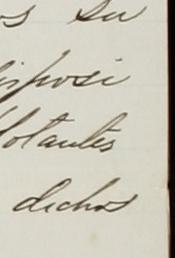 os su
disposi
Votantes
dichos